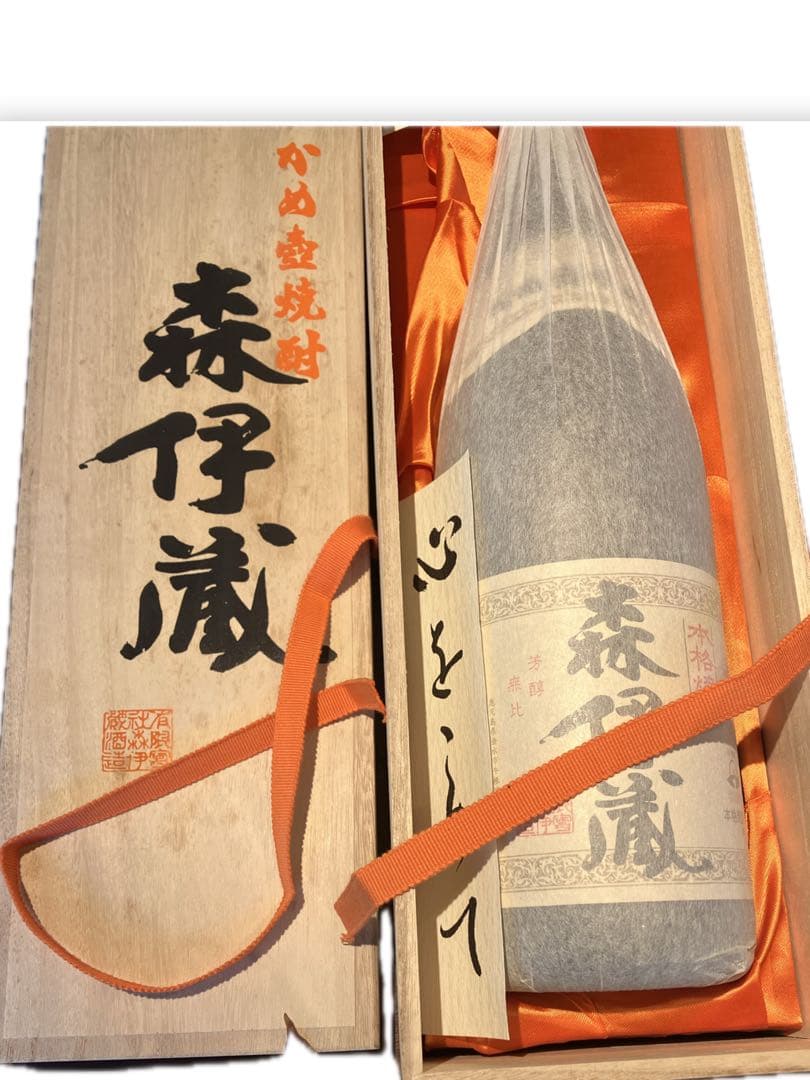 かめ壺焼酎
森伊蔵
有限會
社森伊
蔵酒造
心をこめて
本格焼
森伊蔵
芳醇
無比